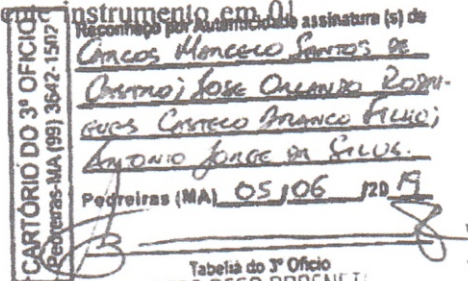 ente instrumento em 01
CARTÓRIO DO 3º OFICIO
Pedreiras-MA (99) 3642-1502
Reconheço por Autenticidade assinatura (s) de
Carcos Marcelo Santos de
Castro; Jose Orlando Rodri-
gues Castelo Branco Filho;
Antonio Jorge da Silva.
Pedreiras (MA) 05/06/2019
Tabeliã do 3º Oficio